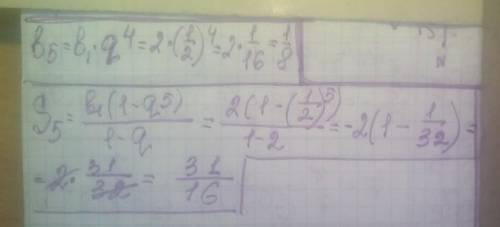 b₅ = b₁ · q⁴ = 2 · (1/2)⁴ = 2 · 1/16 = 1/8
S₅ = b₁(1-q⁵)/1-q = 2(1-(1/2)⁵)/1-2 = -2(1 - 1/32) =
= 2 · 31/32 = 31/16